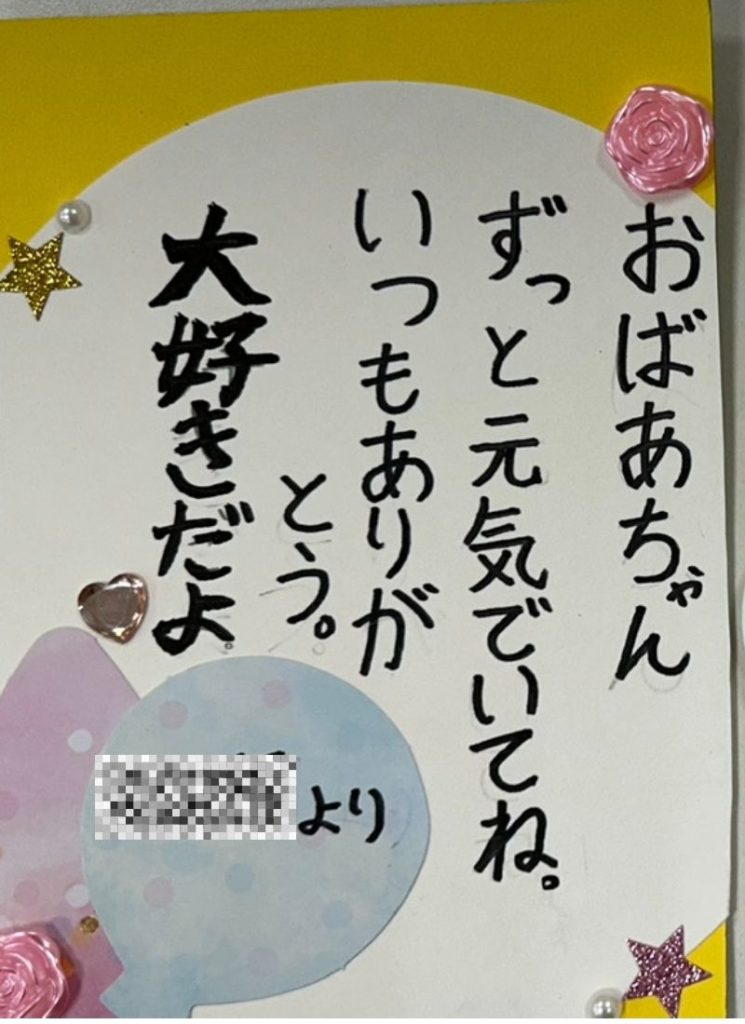 おばあちゃん
ずっと元気でいてね。
いつもありが
とう。
大好きだよ。
より